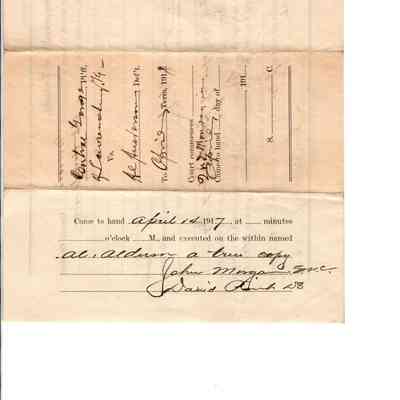 Central Garage Pl'ff.
of Lawrenceburg Ky
Vs.
Def't.
To April Term, 191
Court commences
2nd Monday in
Came to hand day of
, 191
S. C.
Came to hand April 14 1917, at minutes
o'clock M., and executed on the within named
Al. Alderson a true copy
John Morgan S.A.C.
David D.S.